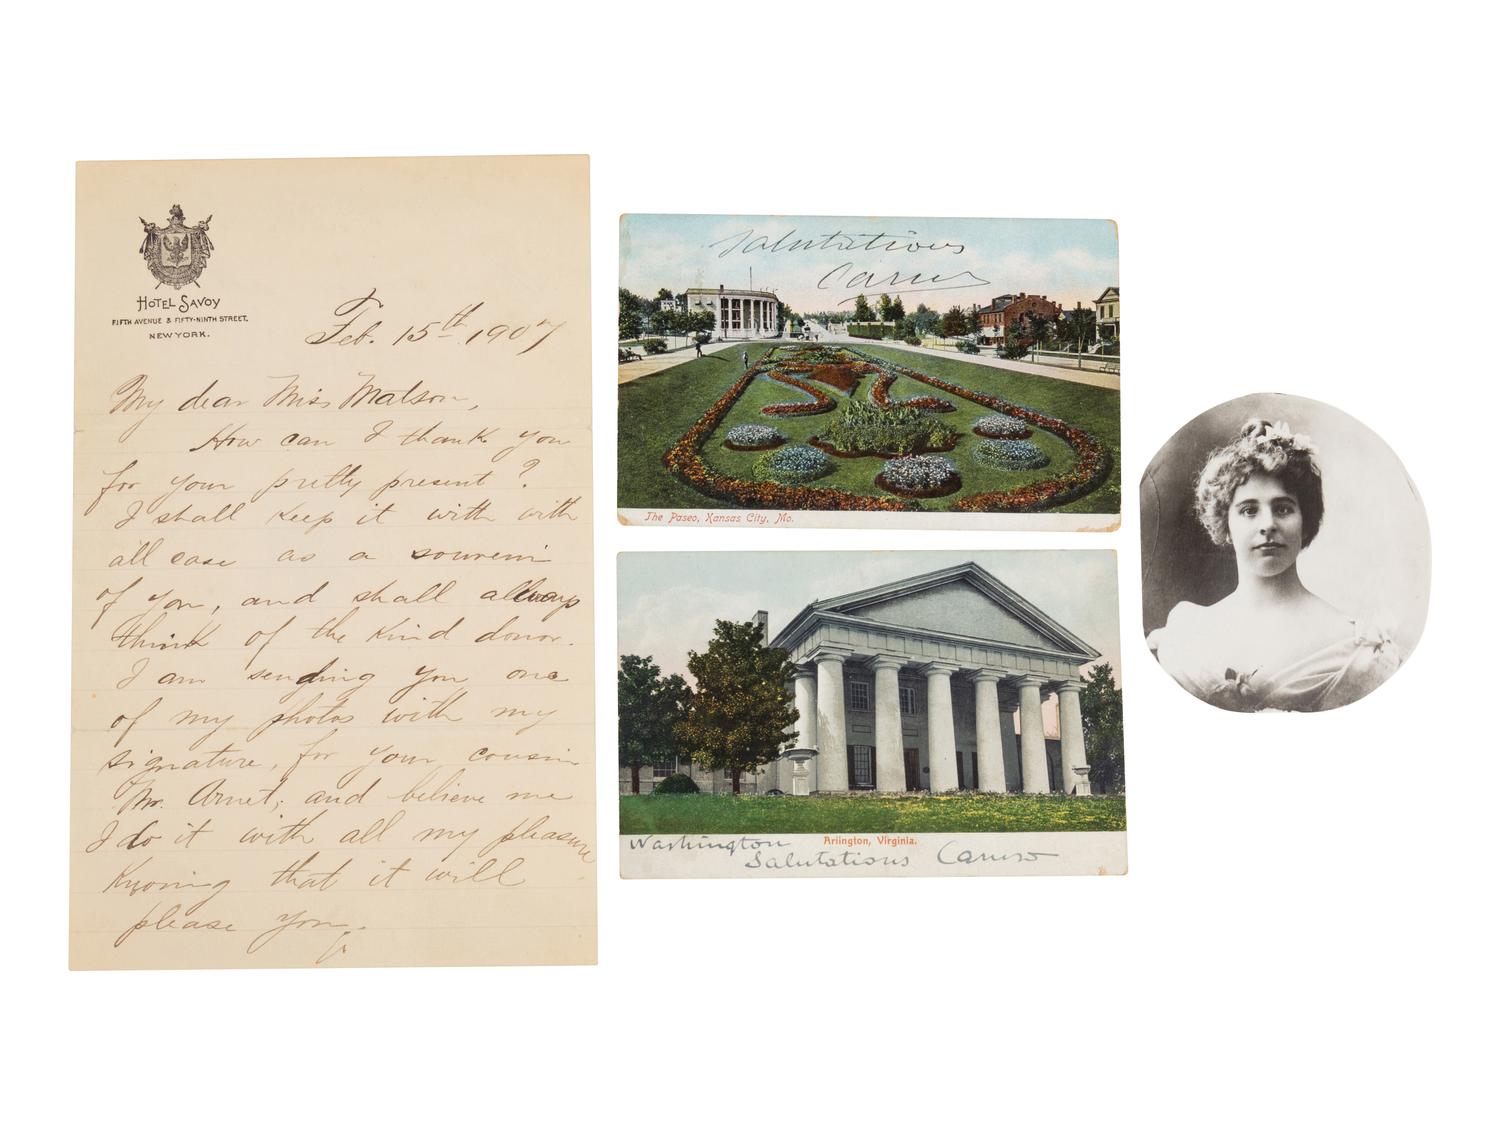 HOTEL SAVOY
FIFTH AVENUE & FIFTY-NINTH STREET.
NEW YORK.
Feb. 15th 1907
My dear Miss Matson,
How can I thank you
for your pretty present?
I shall keep it with with
all case as a souvenir
of you, and shall always
think of the kind donor.
I am sending you one
of my photos with my
signature, for your cousin
Mr. Arnet; and believe me
I do it with all my pleasure
Knoning that it will
please you.
Salutations
Caruso
The Paseo, Kansas City, Mo.
Washington Arlington, Virginia.
Salutations Caruso